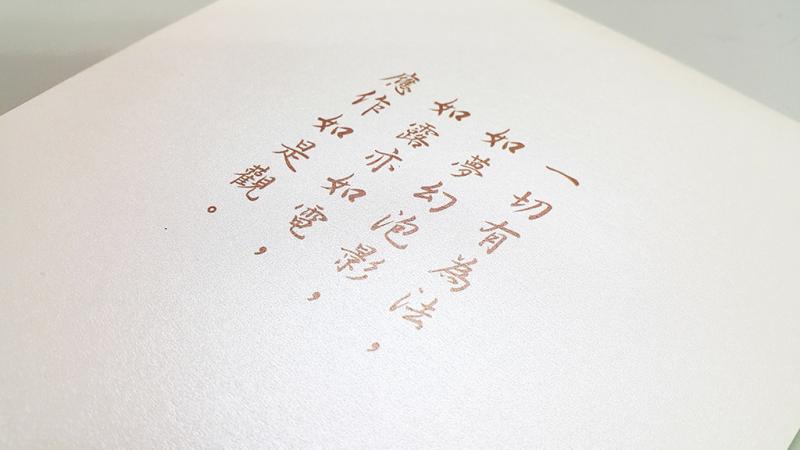 一切有為法，
如夢幻泡影，
如露亦如電，
應作如是觀。